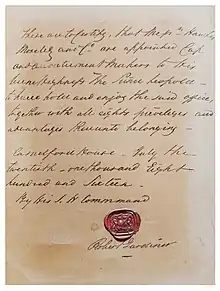 These are to certify, that the Mrs Hawkes
Moseley and Co are appointed Cap
and accoutrement Makers to His
Serene Highness The Prince Leopold —
to have hold and enjoy the said office
together with all rights privileges and
advantages thereunto belonging —
Camelford House — July the
twentieth — one thousand Eight
hundred and Sixteen —
By His S. H Command
Robert Gardiner